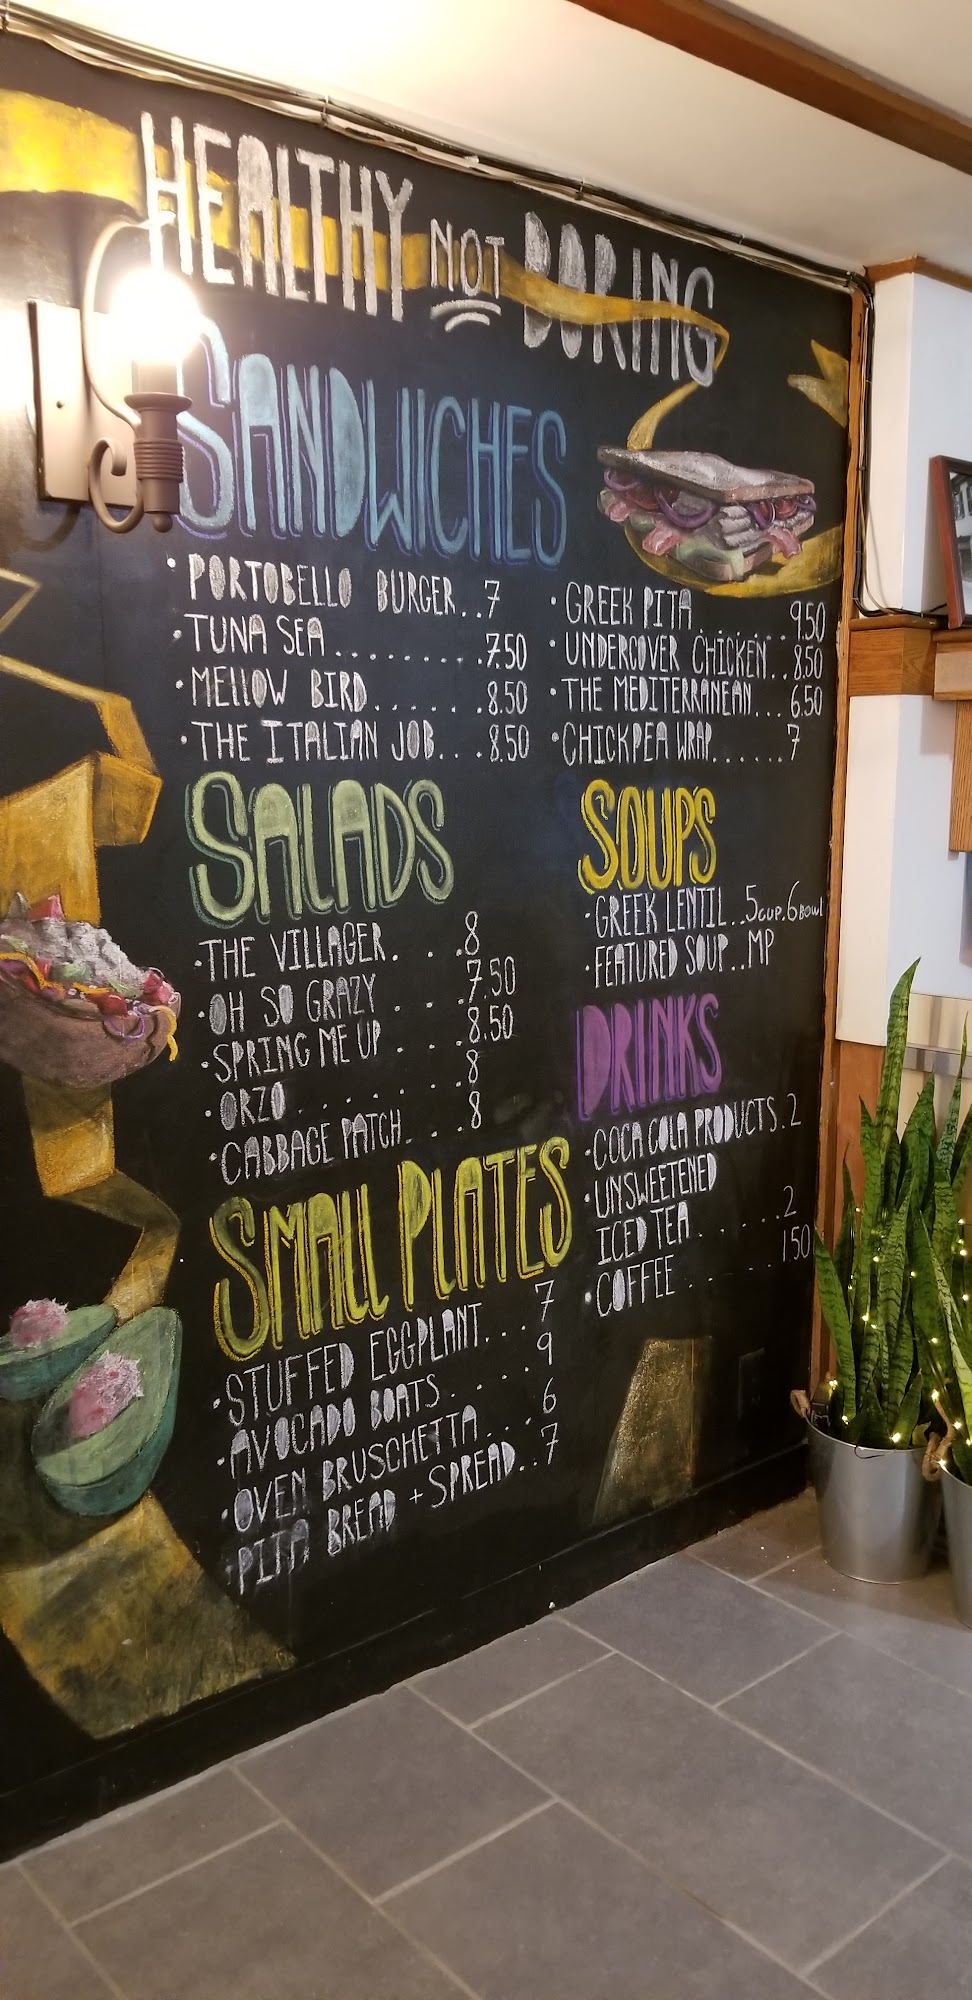 HEALTHY NOT BORING
SANDWICHES
· PORTOBELLO BURGER..7
· TUNA SEA .........7.50
· MELLOW BIRD......8.50
· THE ITALIAN JOB...8.50
· GREEK PITA ........9.50
· UNDERCOVER CHICKEN..8.50
· THE MEDITERRANEAN...6.50
· CHICKPEA WRAP......7
SALADS
· THE VILLAGER....8
· OH SO GRAZY....7.50
· SPRING ME UP....8.50
· ORZO........8
· CABBAGE PATCH....8
SOUPS
· GREEK LENTIL..5CUP.6BOWL
· FEATURED SOUP..MP
DRINKS
· COCA COLA PRODUCTS.2
· UNSWEETENED
ICED TEA......2
· COFFEE......1.50
SMALL PLATES
· STUFFED EGGPLANT...7
· AVOCADO BOATS.....9
· OVEN BRUSCHETTA...6
· PITA BREAD + SPREAD..7